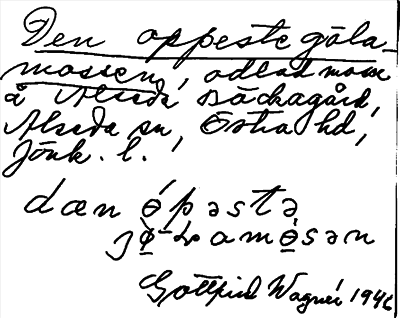 Den öppeste göla-
mossen, odlad mosse
å Alseda Bäckagård,
Alseda sn, Östra hd,
Jönk. l.
dæn ɵ́pəstə
Gottfrid Wagnér 1946